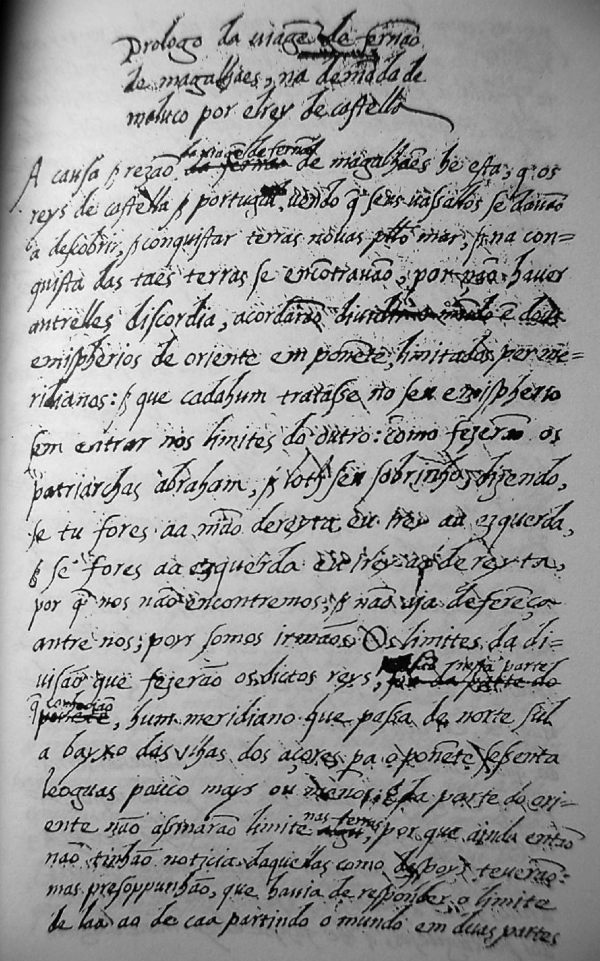 Prologo da viagẽ de fernão
de magalhães, na demãda de
maluco por elrey de castella
da viagẽ de fernão
A causa & rezão de magalhães he esta, q̃ os
reys de castella & portugal, vendo q̃ seus vassallos se davão
a descobrir, & conquistar terras novas pllo mar, & na con=
quista das taes terras se encõtravão, por não haver
antrelles discordia, acordarão dividir o mũdo ẽ dous
emispherios de oriente em ponẽte, limitados per me-
ridianos: & que cadahum tratasse no seu emispherio
sem entrar nos limites do outro: como fezerão os
patriarchas abraham, & loth seu sobrinho, dizendo,
se tu fores aa mão dereyta, eu irey aa ezquerda,
& se fores aa ezquerda eu irey aa dereyta,
por q̃ nos não encontremos, & não aja deferẽça
antre nos; poys somos irmãos. Os limittes da di-
visão que fezerão os dictos reys, parte
q̃, hum meridiano que passa de norte sul
a bayxo das ilhas dos açores pa o ponẽte sessenta
leoguas pouco mays ou menos. E da parte do ori-
ente não asinarão limite nas terras, por que ainda entõ
não tinhão noticia daquellas como despoys teverão:
mas presoppunhão, que havia de responder o limite
de laa ao de caa partindo o mundo em duas partes